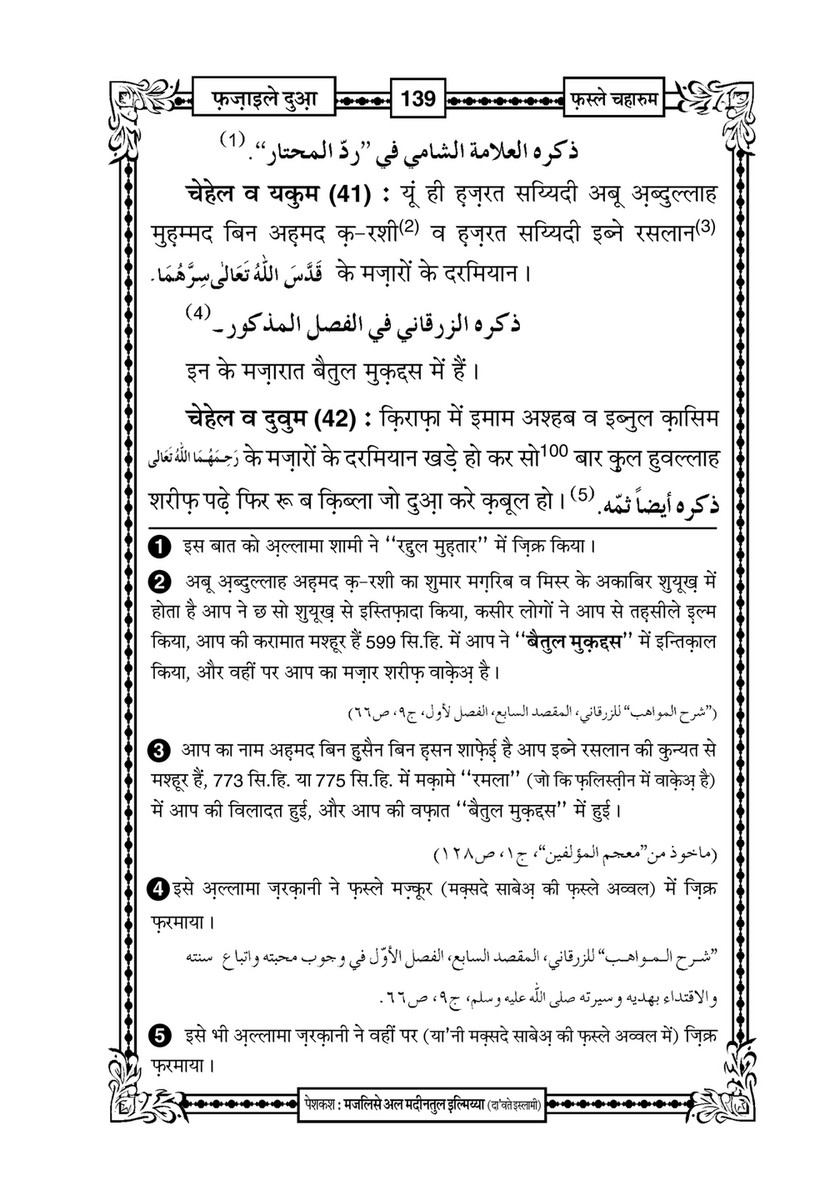 फ़ज़ाइले दुआ़
139
फ़स्ले चहारुम
ذكره العلامة الشامي في ”ردّ المحتار“. (1)
चेहेल व यकुम (41) : यूं ही ह़ज़रत सय्यिदी अबू अ़ब्दुल्लाह
मुह़म्मद बिन अह़मद क़-रशी(2) व ह़ज़रत सय्यिदी इब्ने रसलान(3)
قَدَّسَ اللّٰهُ تَعَالٰى سِرَّهُمَا के मज़ारों के दरमियान ।
ذكره الزرقاني في الفصل المذكور۔ (4)
इन के मज़ारात बैतुल मुक़द्दस में हैं ।
चेहेल व दुवुम (42) : क़िराफ़ा में इमाम अश्हब व इब्नुल क़ासिम
رَحِمَهُمَا اللّٰهُ تَعَالٰى के मज़ारों के दरमियान खड़े हो कर सो100 बार क़ुल हुवल्लाह
शरीफ़ पढ़े फिर रू ब क़िब्ला जो दुआ़ करे क़बूल हो । (5) ذكره أيضاً ثمّه.
1 इस बात को अ़ल्लामा शामी ने ‘‘रद्दुल मुह़तार’’ में ज़िक्र किया ।
2 अबू अ़ब्दुल्लाह अह़मद क़-रशी का शुमार मग़रिब व मिस्र के अकाबिर शुयूख़ में
होता है आप ने छ सो शुयूख़ से इस्तिफ़ादा किया, कसीर लोगों ने आप से तह़सीले इ़ल्म
किया, आप की करामात मश्हूर हैं 599 सि.हि. में आप ने ‘‘बैतुल मुक़द्दस’’ में इन्तिक़ाल
किया, और वहीं पर आप का मज़ार शरीफ़ वाक़ेअ़ है ।
(”شرح المواهب“ للزرقاني، المقصد السابع، الفصل لأول، ج٩، ص٦٦)
3 आप का नाम अह़मद बिन ह़ुसैन बिन ह़सन शाफ़ेई़ है आप इब्ने रसलान की कुन्यत से
मश्हूर हैं, 773 सि.हि. या 775 सि.हि. में मक़ामे ‘‘रमला’’ (जो कि फ़लिस्त़ीन में वाक़ेअ़ है)
में आप की विलादत हुई, और आप की वफ़ात ‘‘बैतुल मुक़द्दस’’ में हुई ।
(ماخوذ من”معجم المؤلفين“، ج١، ص١٢٨)
4 इसे अ़ल्लामा ज़रक़ानी ने फ़स्ले मज़्कूर (मक़्सदे साबेअ़ की फ़स्ले अव्वल) में ज़िक्र
फ़रमाया ।
”شرح المواهب“ للزرقاني، المقصد السابع، الفصل الأوّل في وجوب محبته واتباع سنته
والاقتداء بهديه وسيرته صلى الله عليه وسلم، ج٩، ص٦٦.
5 इसे भी अ़ल्लामा ज़रक़ानी ने वहीं पर (या'नी मक़्सदे साबेअ़ की फ़स्ले अव्वल में) ज़िक्र
फ़रमाया ।
पेशकश : मजलिसे अल मदीनतुल इ़ल्मिय्या (दा'वते इस्लामी)